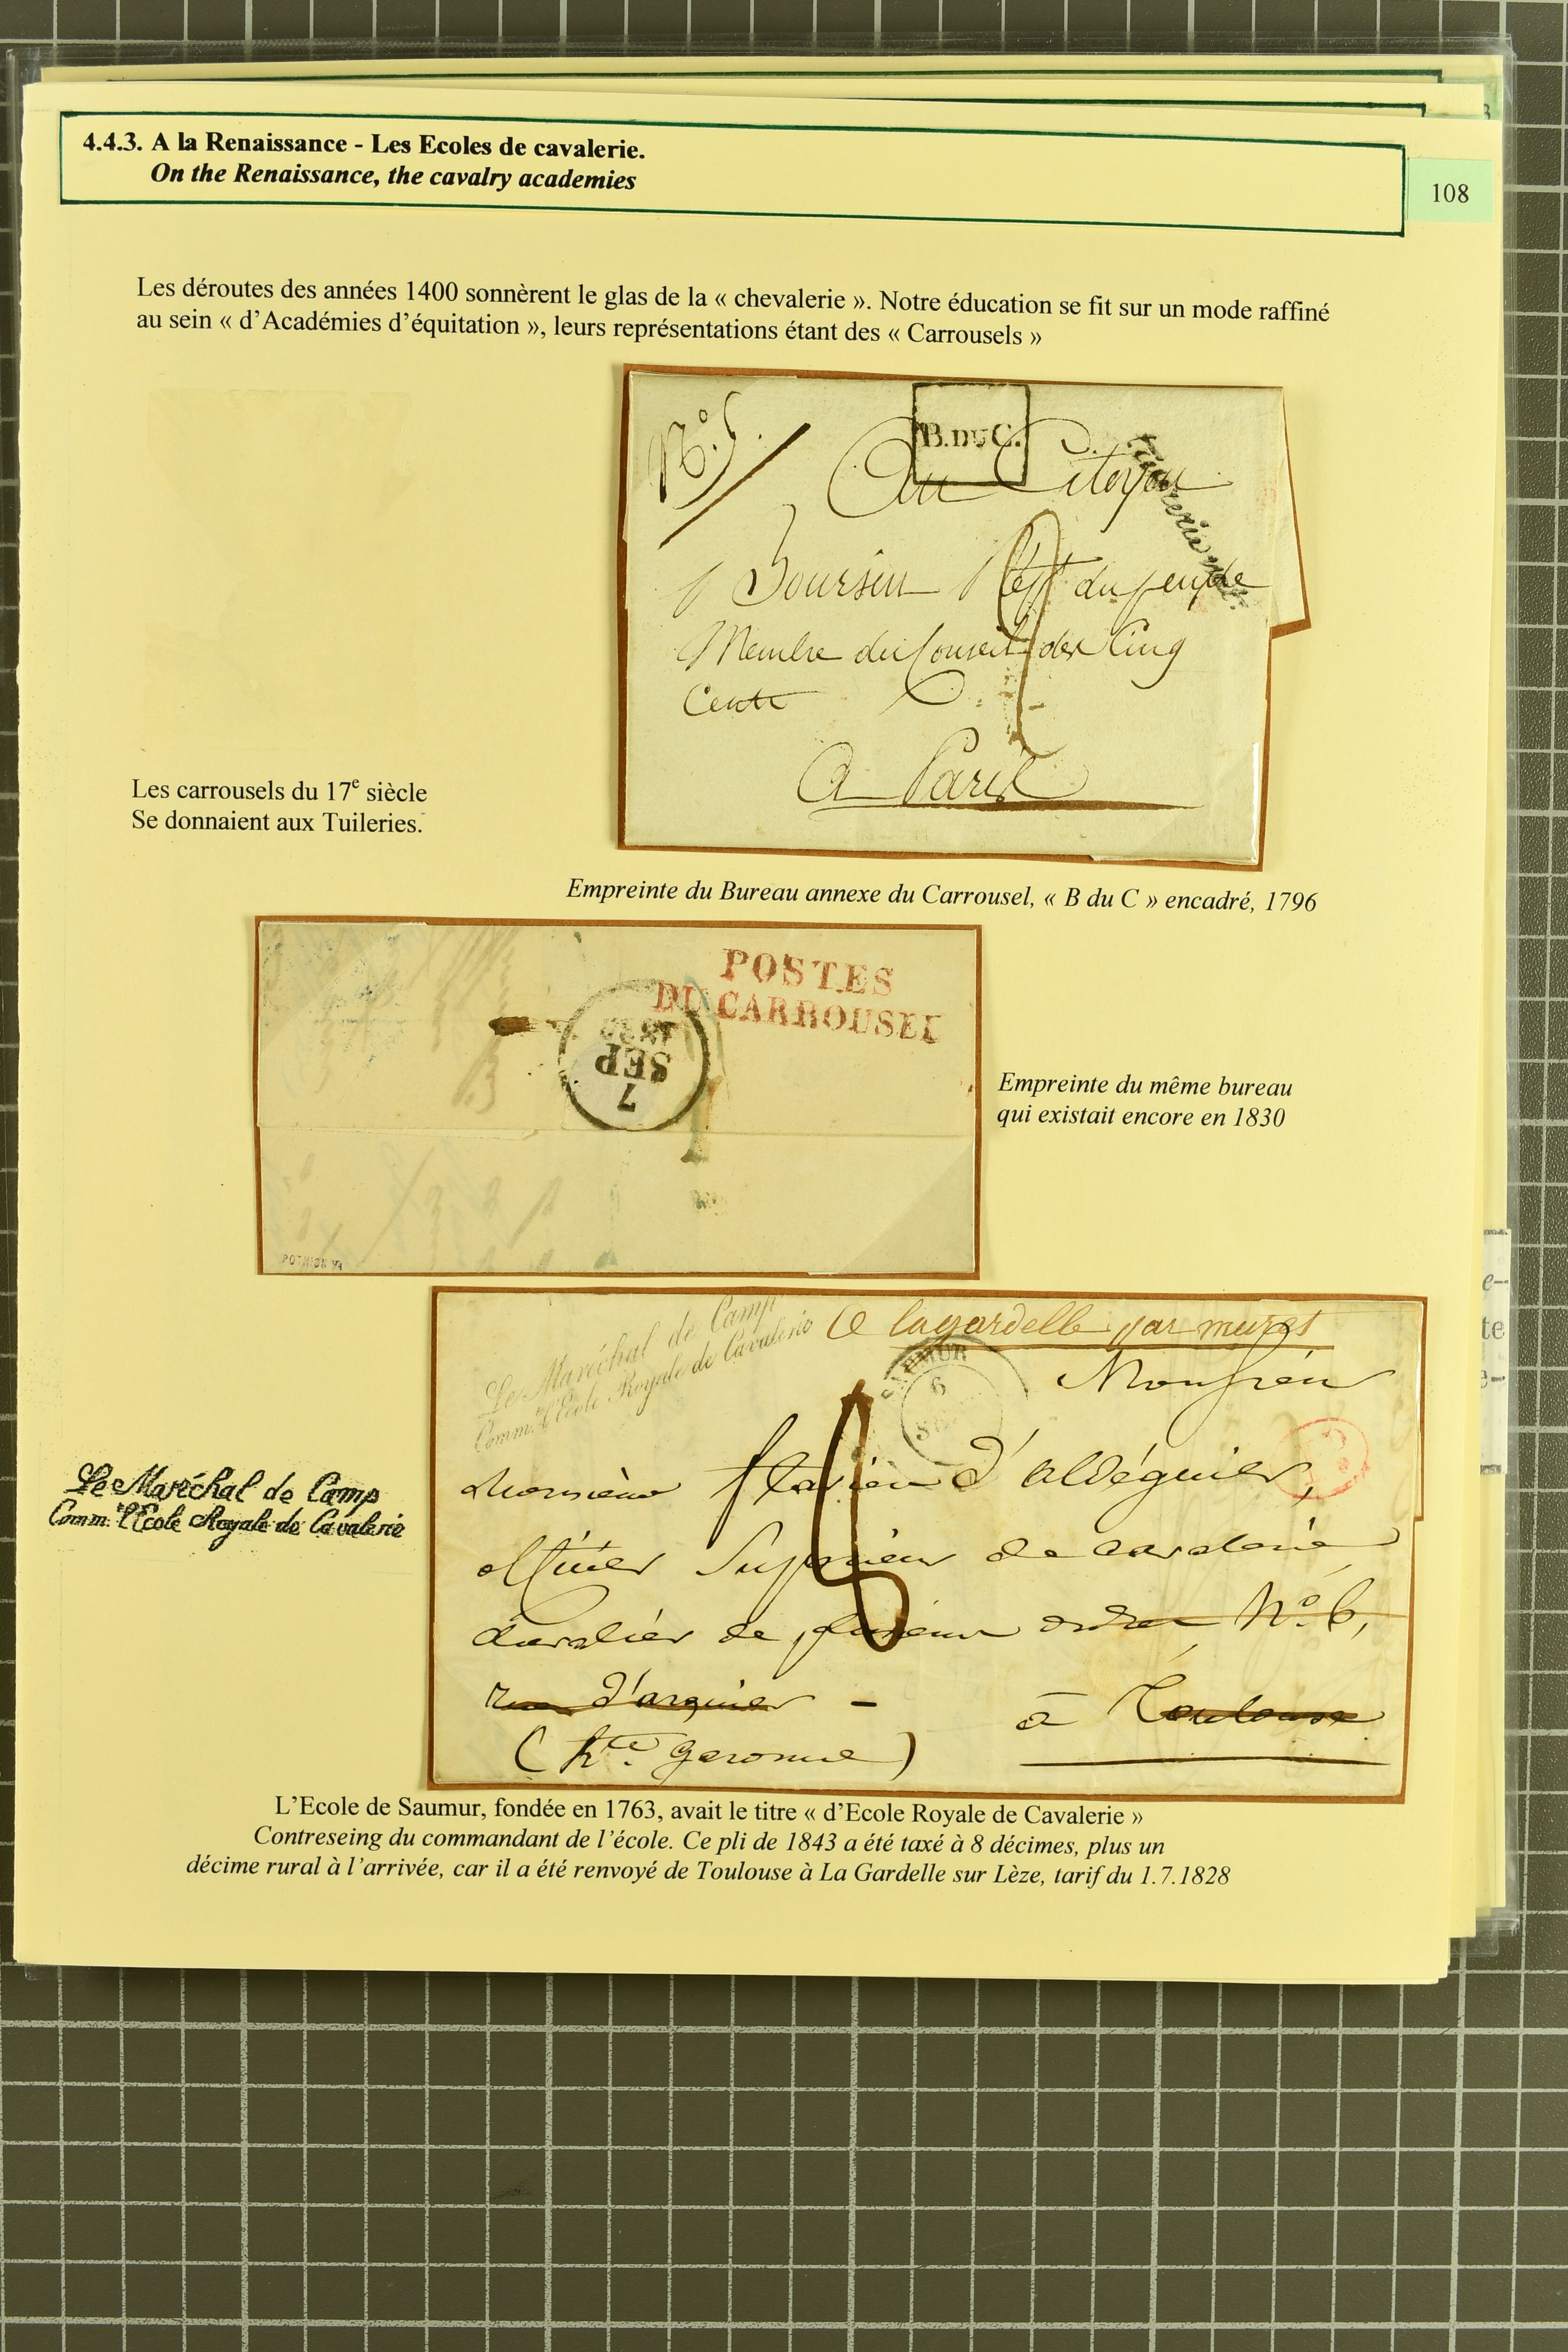 4.4.3. A la Renaissance - Les Ecoles de cavalerie.
On the Renaissance, the cavalry academies
108
Les déroutes des années 1400 sonnèrent le glas de la « chevalerie ». Notre éducation se fit sur un mode raffiné
au sein « d'Académies d'équitation », leurs représentations étant des « Carrousels »
B.DUC.
Au Citoyen
Boursin Rept du peuple
Membre du Conseil des Cinq
Cents
A Paris
Les carrousels du 17e siècle
Se donnaient aux Tuileries.
Empreinte du Bureau annexe du Carrousel, « B du C » encadré, 1796
POSTES
DU CARROUSEL
7
SEP
Empreinte du même bureau
qui existait encore en 1830
Le Maréchal de Camp
Comm.t l'Ecole Royale de Cavalerie
a lagardelle par murets
SAUMUR
6
Monsieur
Monsieur flavien d'aldéguier,
officier Supérieur de cavalerie
chevalier de plusieurs ordres N.º 6,
rue d'arquier -
à Toulouse
(hte. garonne)
Le Maréchal de Camp
Comm. l'Ecole Royale de Cavalerie
L'Ecole de Saumur, fondée en 1763, avait le titre « d'Ecole Royale de Cavalerie »
Contreseing du commandant de l'école. Ce pli de 1843 a été taxé à 8 décimes, plus un
décime rural à l'arrivée, car il a été renvoyé de Toulouse à La Gardelle sur Lèze, tarif du 1.7.1828